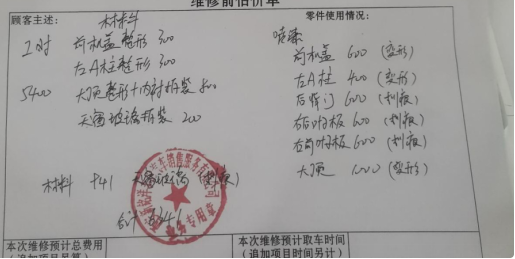 维修前估价单
顾客主述：
零件使用情况：
材料
工时
前机盖整形 300
喷漆
左A柱整形 300
前机盖 600 (变形)
5400
大顶整形+内衬拆装 800
左A柱 400 (变形)
天窗玻璃拆装 200
后背门 600 (划痕)
右后叶板 600 (划痕)
右前叶板 600 (划痕)
大顶 1000 (变形)
材料 941 天窗玻璃
合计
专用章
本次维修预计总费用
（追加项目另算）
本次维修预计取车时间
（追加项目时间另计）